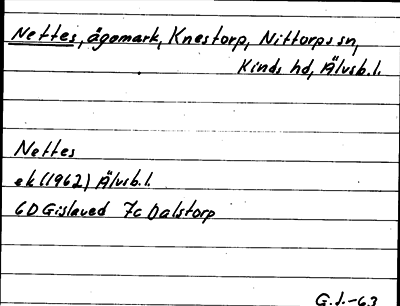 Nettes, ägomark, Knestorp, Nittorps sn,
Kinds hd, Älvsb. l.
Nettes
ek (1962) Älvsb. l.
6D Gislaved 7c Dalstorp
G. J. -63